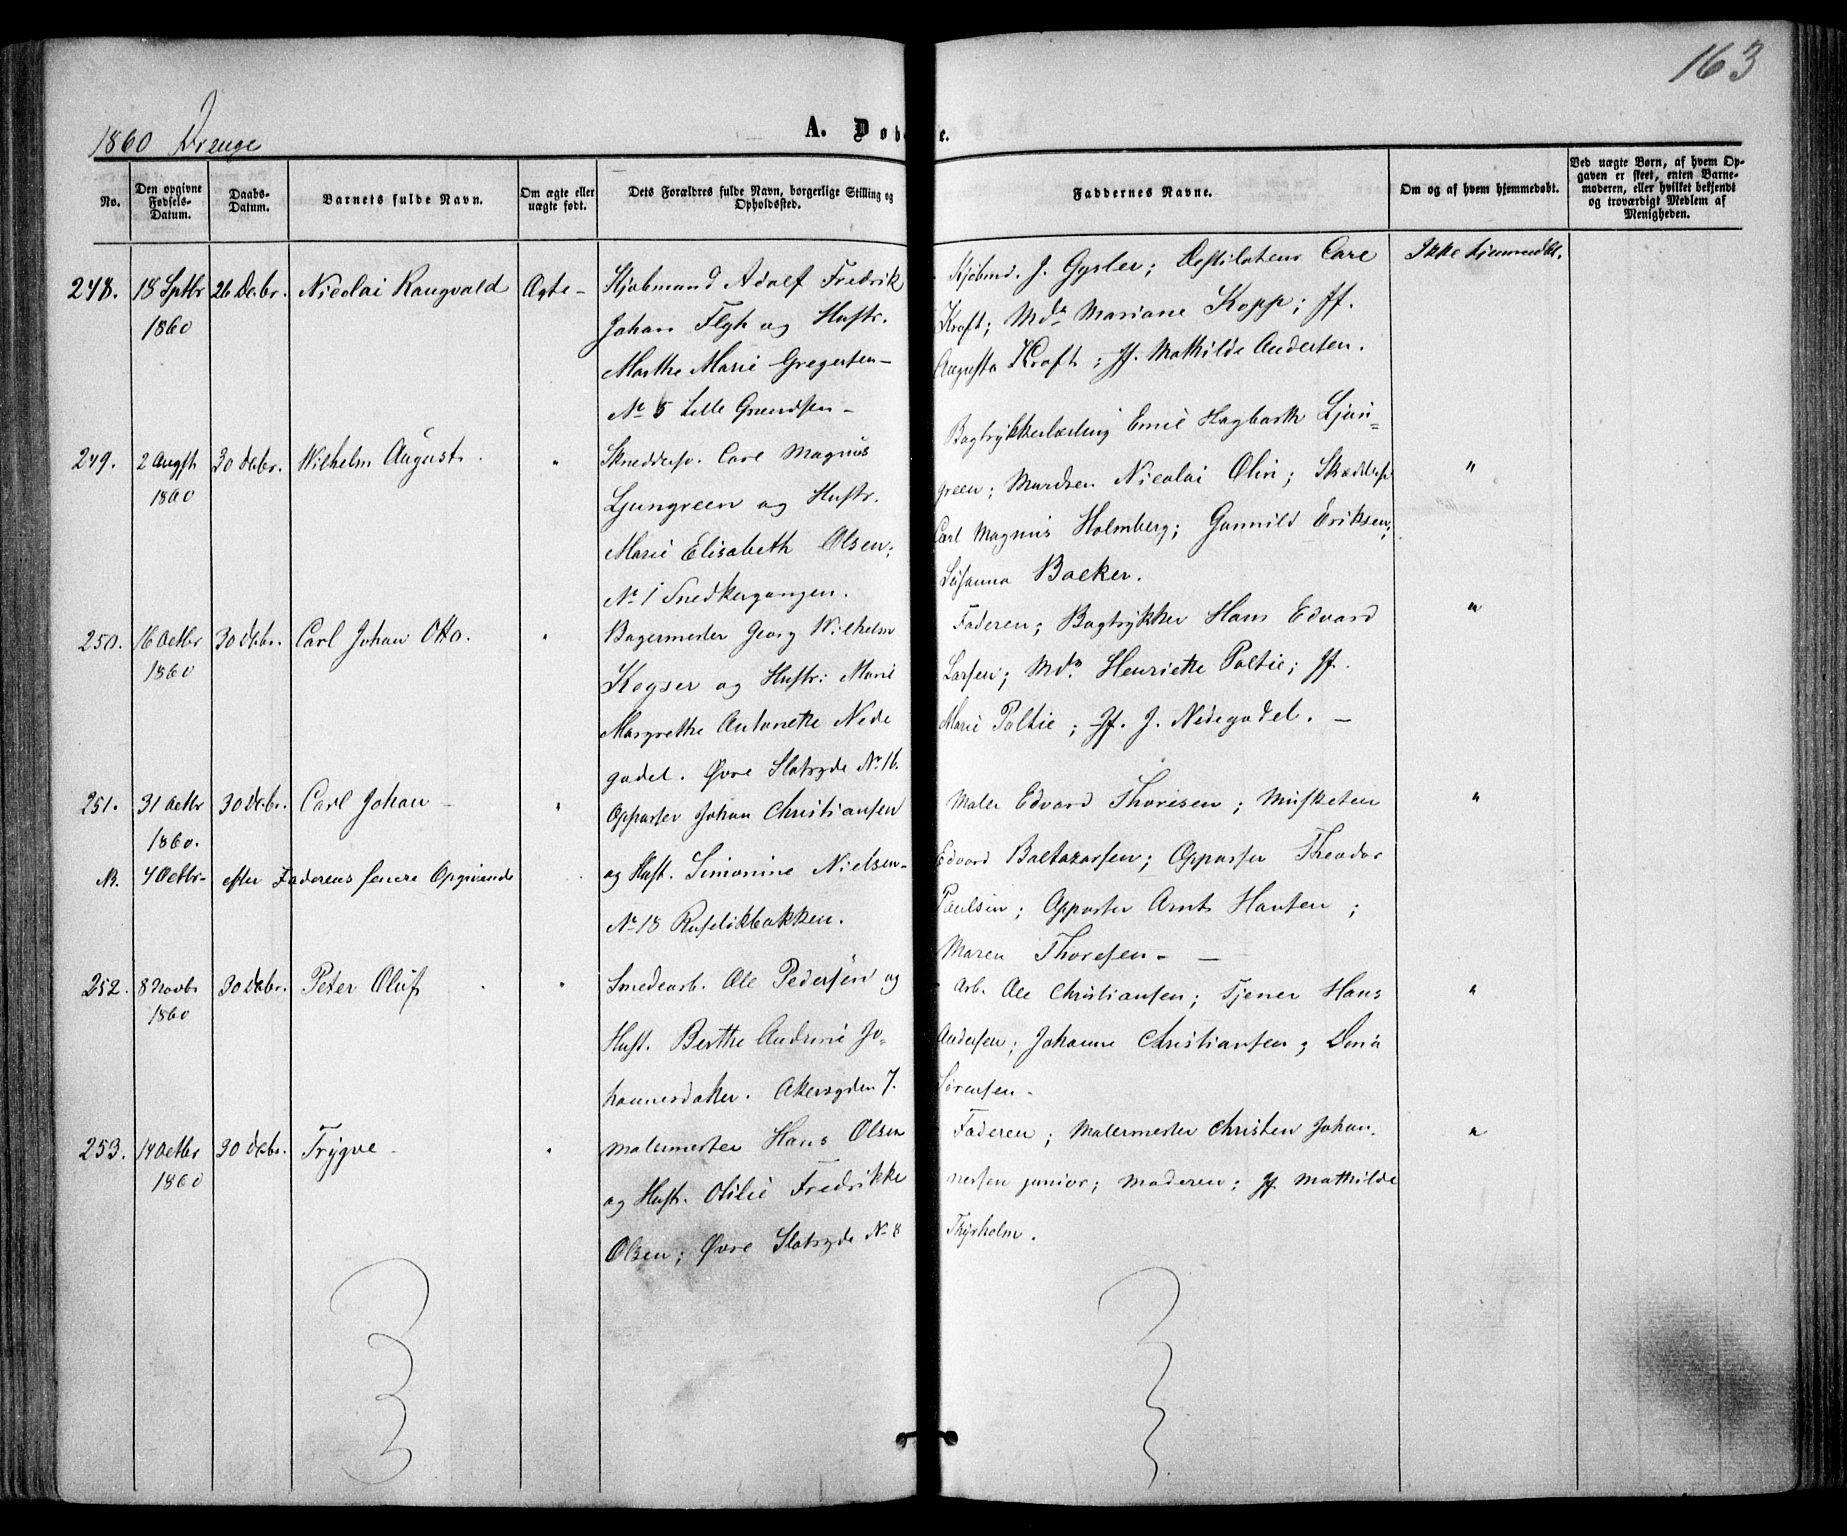 163
1860 Drenge
A. Døbte.
No.
Den opgivne Fødsels-Datum.
Daabs-Datum.
Barnets fulde Navn.
Om ægte eller uægte født.
Dets Forældres fulde Navn, borgerlige Stilling og Opholdssted.
Faddernes Navne.
Om og af hvem hjemmedøbt.
Ved uægte Børn, af hvem Opgaven er skeet, enten Barnemoderen, eller hvilket bekjendt og troværdigt Medlem af Menigheden.
248. 18 Sptbr 1860 26 Decbr. Nicolai Rangvald Ægte
Kjøbmand Adolf Fredrik
Johan Flgh og Hustr.
Marthe Marie Gregersen
No 5 Lille Grændsen
Kjøbmd. J. Gysler; Destilateur Carl
Kroft; Mdm Mariane Kopp; Jf.
Augusta Kroft; Jf. Mathilde Andersen.
Ikke hjemmedbt.
249. 2 Augst 1860 30 Decbr. Wilhelm August "
Skreddersv. Carl Magnus
Ljungreen og Hustr.
Marie Elisabeth Olsen;
No 1 Snedkergangen.
Bogtrykkerlærling Emil Hagbarth Ljun-
green; Murdsen Nicolai Olin; Skreddersv
Carl Magnus Holmberg; Gunnild Eriksen;
Susanna Backer.
"
250. 16 Octbr 1860 30 Decbr. Carl Johan Otto. "
Bagermester Georg Wilhelm
Keyser og Hustr: Marie
Margrethe Antonette Nede
gadel. Øvre Slotsgde No 16.
Faderen; Bogtrykker Hans Edvard
Larsen; Mdm. Henriette Poltie; Jf.
Marie Poltie; Jf. J. Nedegadel.
"
251. 31 Octbr 1860. 30 Decbr. Carl Johan "
NB. 4 Octbr efter Faderens senere Opgivende
Oppasser Johan Christiansen
og Hust. Simonine Nielsen
No 18 Ruseløkbakken.
Maler Edvard Thoresen; Musketeer
Edvard Baltazarsen; Oppasser Theodor
Paulsen; Oppasser Arnt Hansen;
Maren Thoresen
"
252. 8 Novbr 1860 30 Decbr. Peter Oluf "
Smedearb. Ole Pedersen og
Hust. Berthe Andrine Jo-
hannesdatter. Akersgden 7.
Arb. Ole Christiansen; Tjener Hans
Andersen; Johanne Christiansen;
Sørensen
"
253. 14 Octbr 1860 30 Decbr. Trygve "
Malermester Hans Olsen
og Hust. Otilie Fredrikke
Olsen; Øvre Slotsgde No 8
Faderen; Malermester Christen Johan-
nessen junior; Moderen; Jf Mathilde
Thyrholm.
"